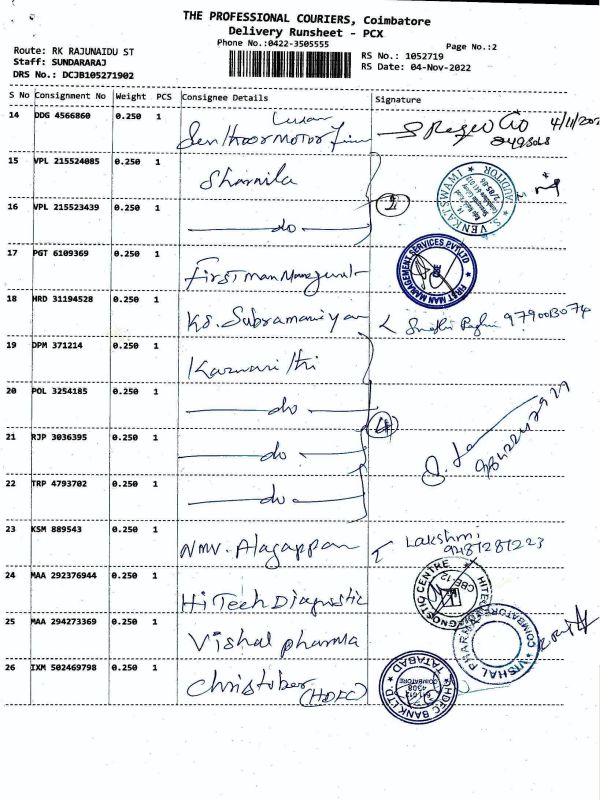 THE PROFESSIONAL COURIERS, Coimbatore
Delivery Runsheet - PCX
Phone No.:0422-3505555
Page No.:2
Route: RK RAJUNAIDU ST
Staff: SUNDARARAJ
DRS No.: DCJB105271902
RS No.: 1052719
RS Date: 04-Nov-2022
S No Consignment No Weight PCS Consignee Details Signature
14 DDG 4566860 0.250 1
15 VPL 215524085 0.250 1 Sharmila
16 VPL 215523439 0.250 1 do
2
S. VENKATSWAMI AUDITOR
17 PGT 6109369 0.250 1
FIRST MAN MANAGEMENT SERVICES PVT LTD
18 HRD 31194528 0.250 1 KS. Subramaniyan
19 DPM 371214 0.250 1
20 POL 3254185 0.250 1 do
4
21 RJP 3036395 0.250 1 do
22 TRP 4793702 0.250 1 do
23 KSM 889543 0.250 1 NMV. Alagappan Lakshmi
9487287223
24 MAA 292376944 0.250 1 Hi Tech Diagnostic
CBE-12
25 MAA 294273369 0.250 1 Vishal pharma
VISHAL PHARMA COIMBATORE
26 IXM 502469798 0.250 1 Christober
(HDFC)
HDFC BANK LTD TATABAD